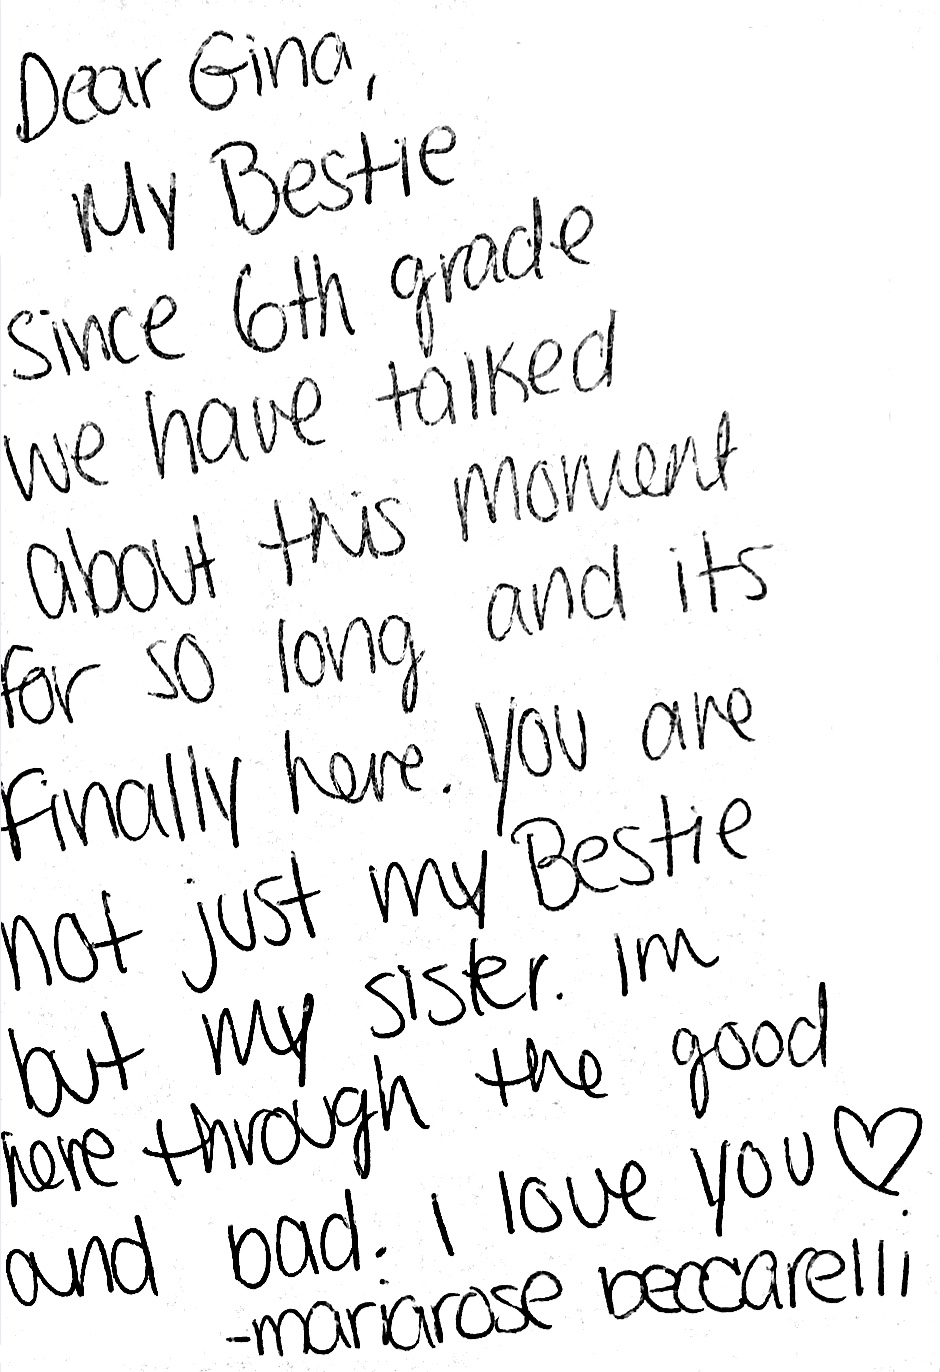 Dear Gina,
My Bestie
since 6th grade
we have talked
about this moment
for so long and its
finally here. you are
not just my Bestie
but my sister. im
here through the good
and bad. i love you♡
-mariarose beccarelli